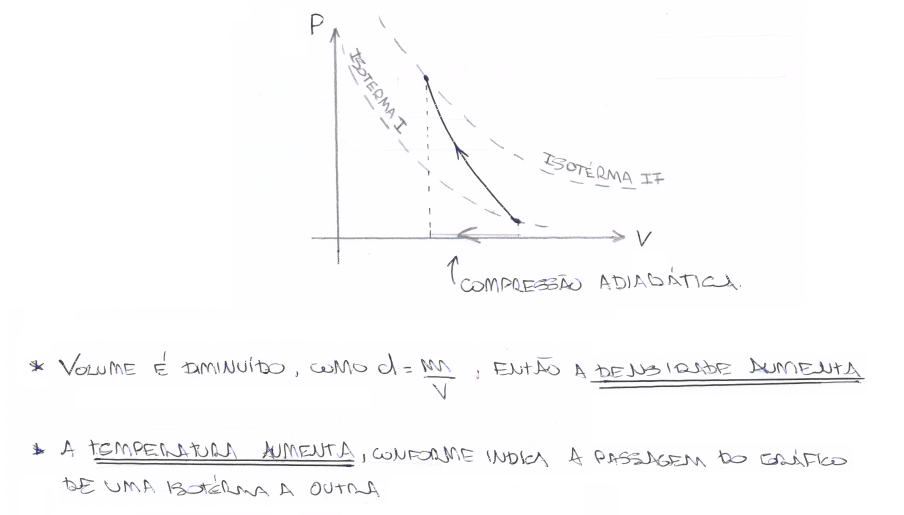 P
ISOTERMA I
ISOTÉRMA II
V
COMPRESSÃO ADIABÁTICA.
* VOLUME É DIMINUÍDO, COMO d = m/V, ENTÃO A DENSIDADE AUMENTA
* A TEMPERATURA AUMENTA, CONFORME INDICA A PASSAGEM DO GRÁFICO
DE UMA ISOTÉRMA A OUTRA